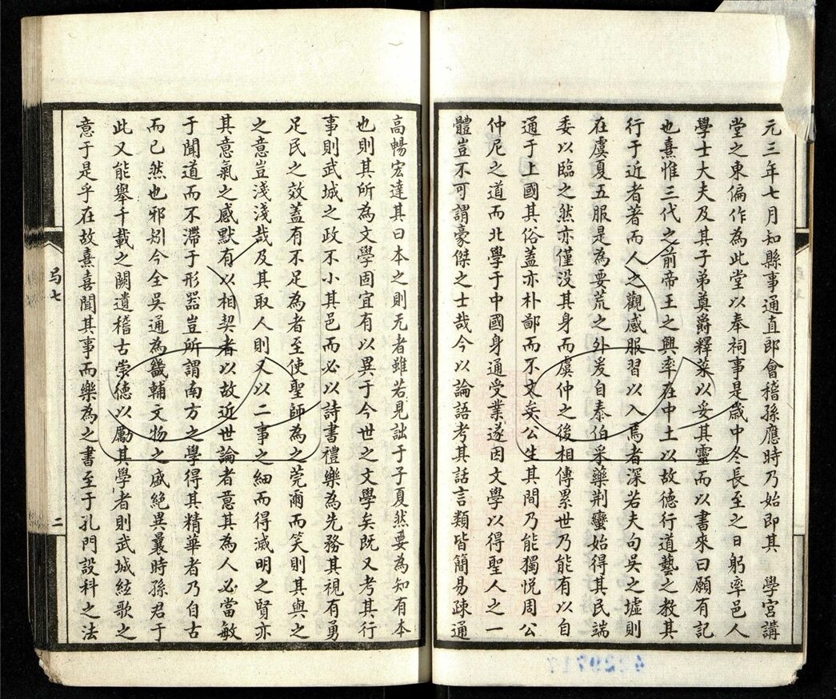 元三年七月知縣事通直郎會稽孫應時乃始即其　學宮講
堂之東偏作為此堂以奉祠事是歲中冬長至之日躬率邑人
學士大夫及其子弟奠爵釋菜以妥其靈而以書來曰願有記
也熹惟三代之前帝王之興率在中土以故德行道藝之教其
行于近者著而人之觀感服習以入焉者深若夫句吳之墟則
在虞夏五服是為要荒之外爰自泰伯采藥荆蠻始得其民端
委以臨之然亦僅没其身而虞仲之後相傳累世乃能有以自
通于上國其俗蓋亦朴鄙而不文矣公生其間乃能獨悅周公
仲尼之道而北學于中國身通受業遂因文學以得聖人之一
體豈不可謂豪傑之士哉今以論語考其話言類皆簡易疎通
高暢宏達其曰本之則无者雖若見詘于子夏然要為知有本
也則其所為文學固宜有以異于今世之文學矣既又考其行
事則武城之政不小其邑而必以詩書禮樂為先務其視有勇
足民之效蓋有不足為者至使聖師為之莞爾而笑則其與之
之意豈淺淺哉及其取人則又以二事之細而得滅明之賢亦
其意氣之感默有以相契者以故近世論者意其為人必當敏
于聞道而不滯于形器豈所謂南方之學得其精華者乃自古
而已然也邪矧今全吳通為畿輔文物之盛絶異曩時孫君于
此又能舉千載之闕遺稽古崇德以厲其學者則武城絃歌之
意于是乎在故熹喜聞其事而樂為之書至于孔門設科之法
二